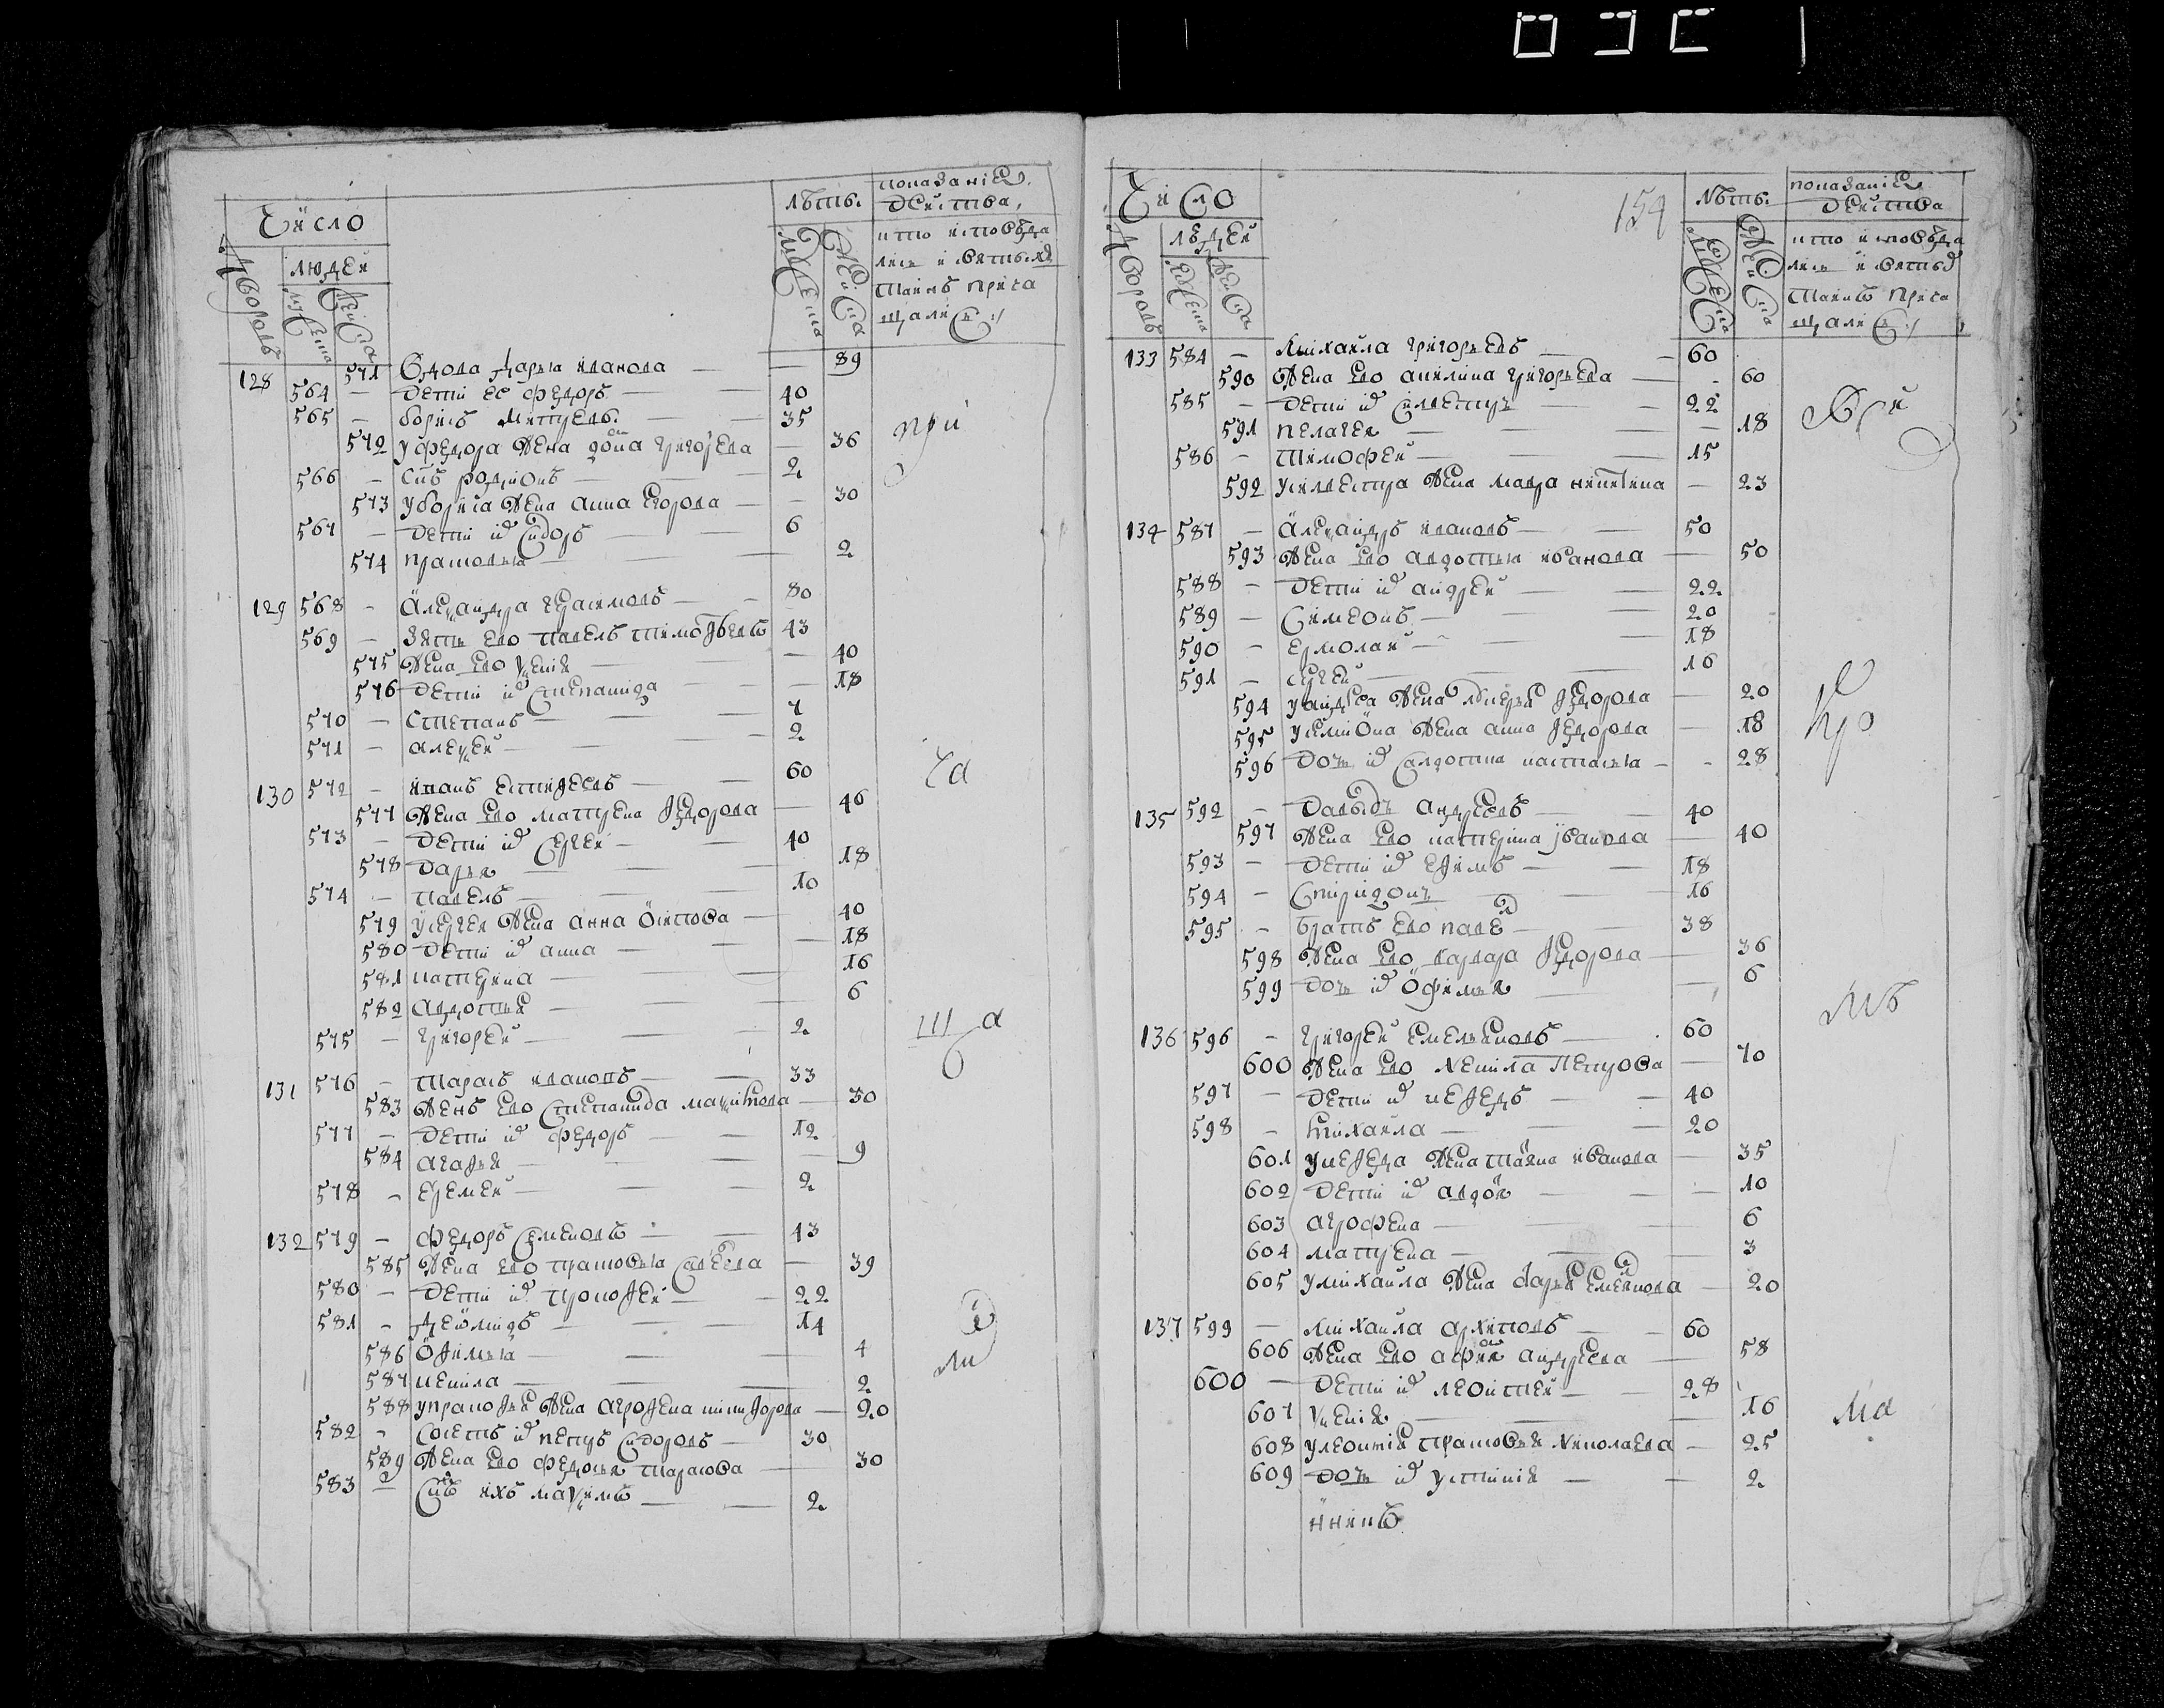 Число
людей
Дворовъ
мужеска
женска
лѣтъ.
мужеска
женска
показаніе
действа,
кто исповѣда
лись и святыхъ
таинъ прича
щались
128 571 Вдова дарья иванова — 89
564 — дети ее федоръ — 40
565 — борисъ — 35
572 у федора жена григорева — 36
566 — сынъ родионъ — 2
573 у бориса жена анна егорова — 30
567 — дети их сидоръ — 6
574 прасковья — 2
129 568 — александра герасимовъ — 80
569 — зять ево павелъ тимофеевъ 43
575 жена ево ксения — 40
576 дети их степанида — 18
570 — степанъ — 7
571 — алексей — 2
130 572 — иванъ естифеевъ — 60
577 жена ево матрена федорова — 46
573 — дети их сергей — 40
578 дарья — 18
574 — павелъ — 10
579 у сергея жена анна осипова — 40
580 дети их анна — 18
581 катерина — 16
582 авдотья — 6
575 — григорей — 2
131 576 — тарасъ ивановъ — 33
583 жена ево степанида макѣнова — 30
577 — дети их федоръ — 12
584 агафья — 9
578 — еремей — 2
132 579 — федоръ семеновъ — 43
585 жена ево прасковья савѣева — 39
580 — дети их прокофей — 22
581 — 14
586 офимья — 4
587 некила — 2
588 у прокофья жена агрофена никифорова — 20
582 — их петръ сидоровъ — 30
589 жена ево федосья тарасова — 30
583 — сынъ ихъ максимъ — 2
при
ча
ща
ли
Число
людей
Дворовъ
мужеска
женска
159
лѣтъ.
мужеска
женска
показаніе
действа
кто исповѣда
лись и святых
таинъ прича
щались
133 584 — михайла григорьевъ — 60
590 жена ево акилина григорьева — 60
585 — дети их силвестръ — 22
591 пелагея — 18
586 — тимофей — 15
592 у силвестра жена мавра никитина — 23
134 587 — александръ ивановъ — 50
593 жена ево авдотья иванова — 50
588 — дети их андрей — 22
589 — симеонъ — 20
590 — ермолай — 18
591 — сергей — 16
594 у андрея жена федорова — 20
595 у симиона жена анна федорова — 18
596 дочь их настасья — 28
135 592 — давыдъ андреевъ — 40
597 жена ево катерина иванова — 40
593 — дети их ефимъ — 18
594 — спиридонъ — 16
595 — братъ ево паве — 38
598 жена ево варвара федорова — 36
599 дочь их офимья — 6
136 596 — григорей емельяновъ — 60
600 жена ево некила петрова — 70
597 — дети их нефедъ — 40
598 — михайла — 20
601 у нефеда жена татяна иванова — 35
602 дети их авдотя — 10
603 агрофена — 6
604 матрена — 3
605 у михайла жена дарья семенова — 20
137 599 — михайла архиповъ — 60
606 жена ево андреева — 58
600 — дети их леонтей — 28
607 ксения — 16
608 у леонтия прасковья николаева — 25
609 дочь их устиния — 2
нникъ
ли
ма